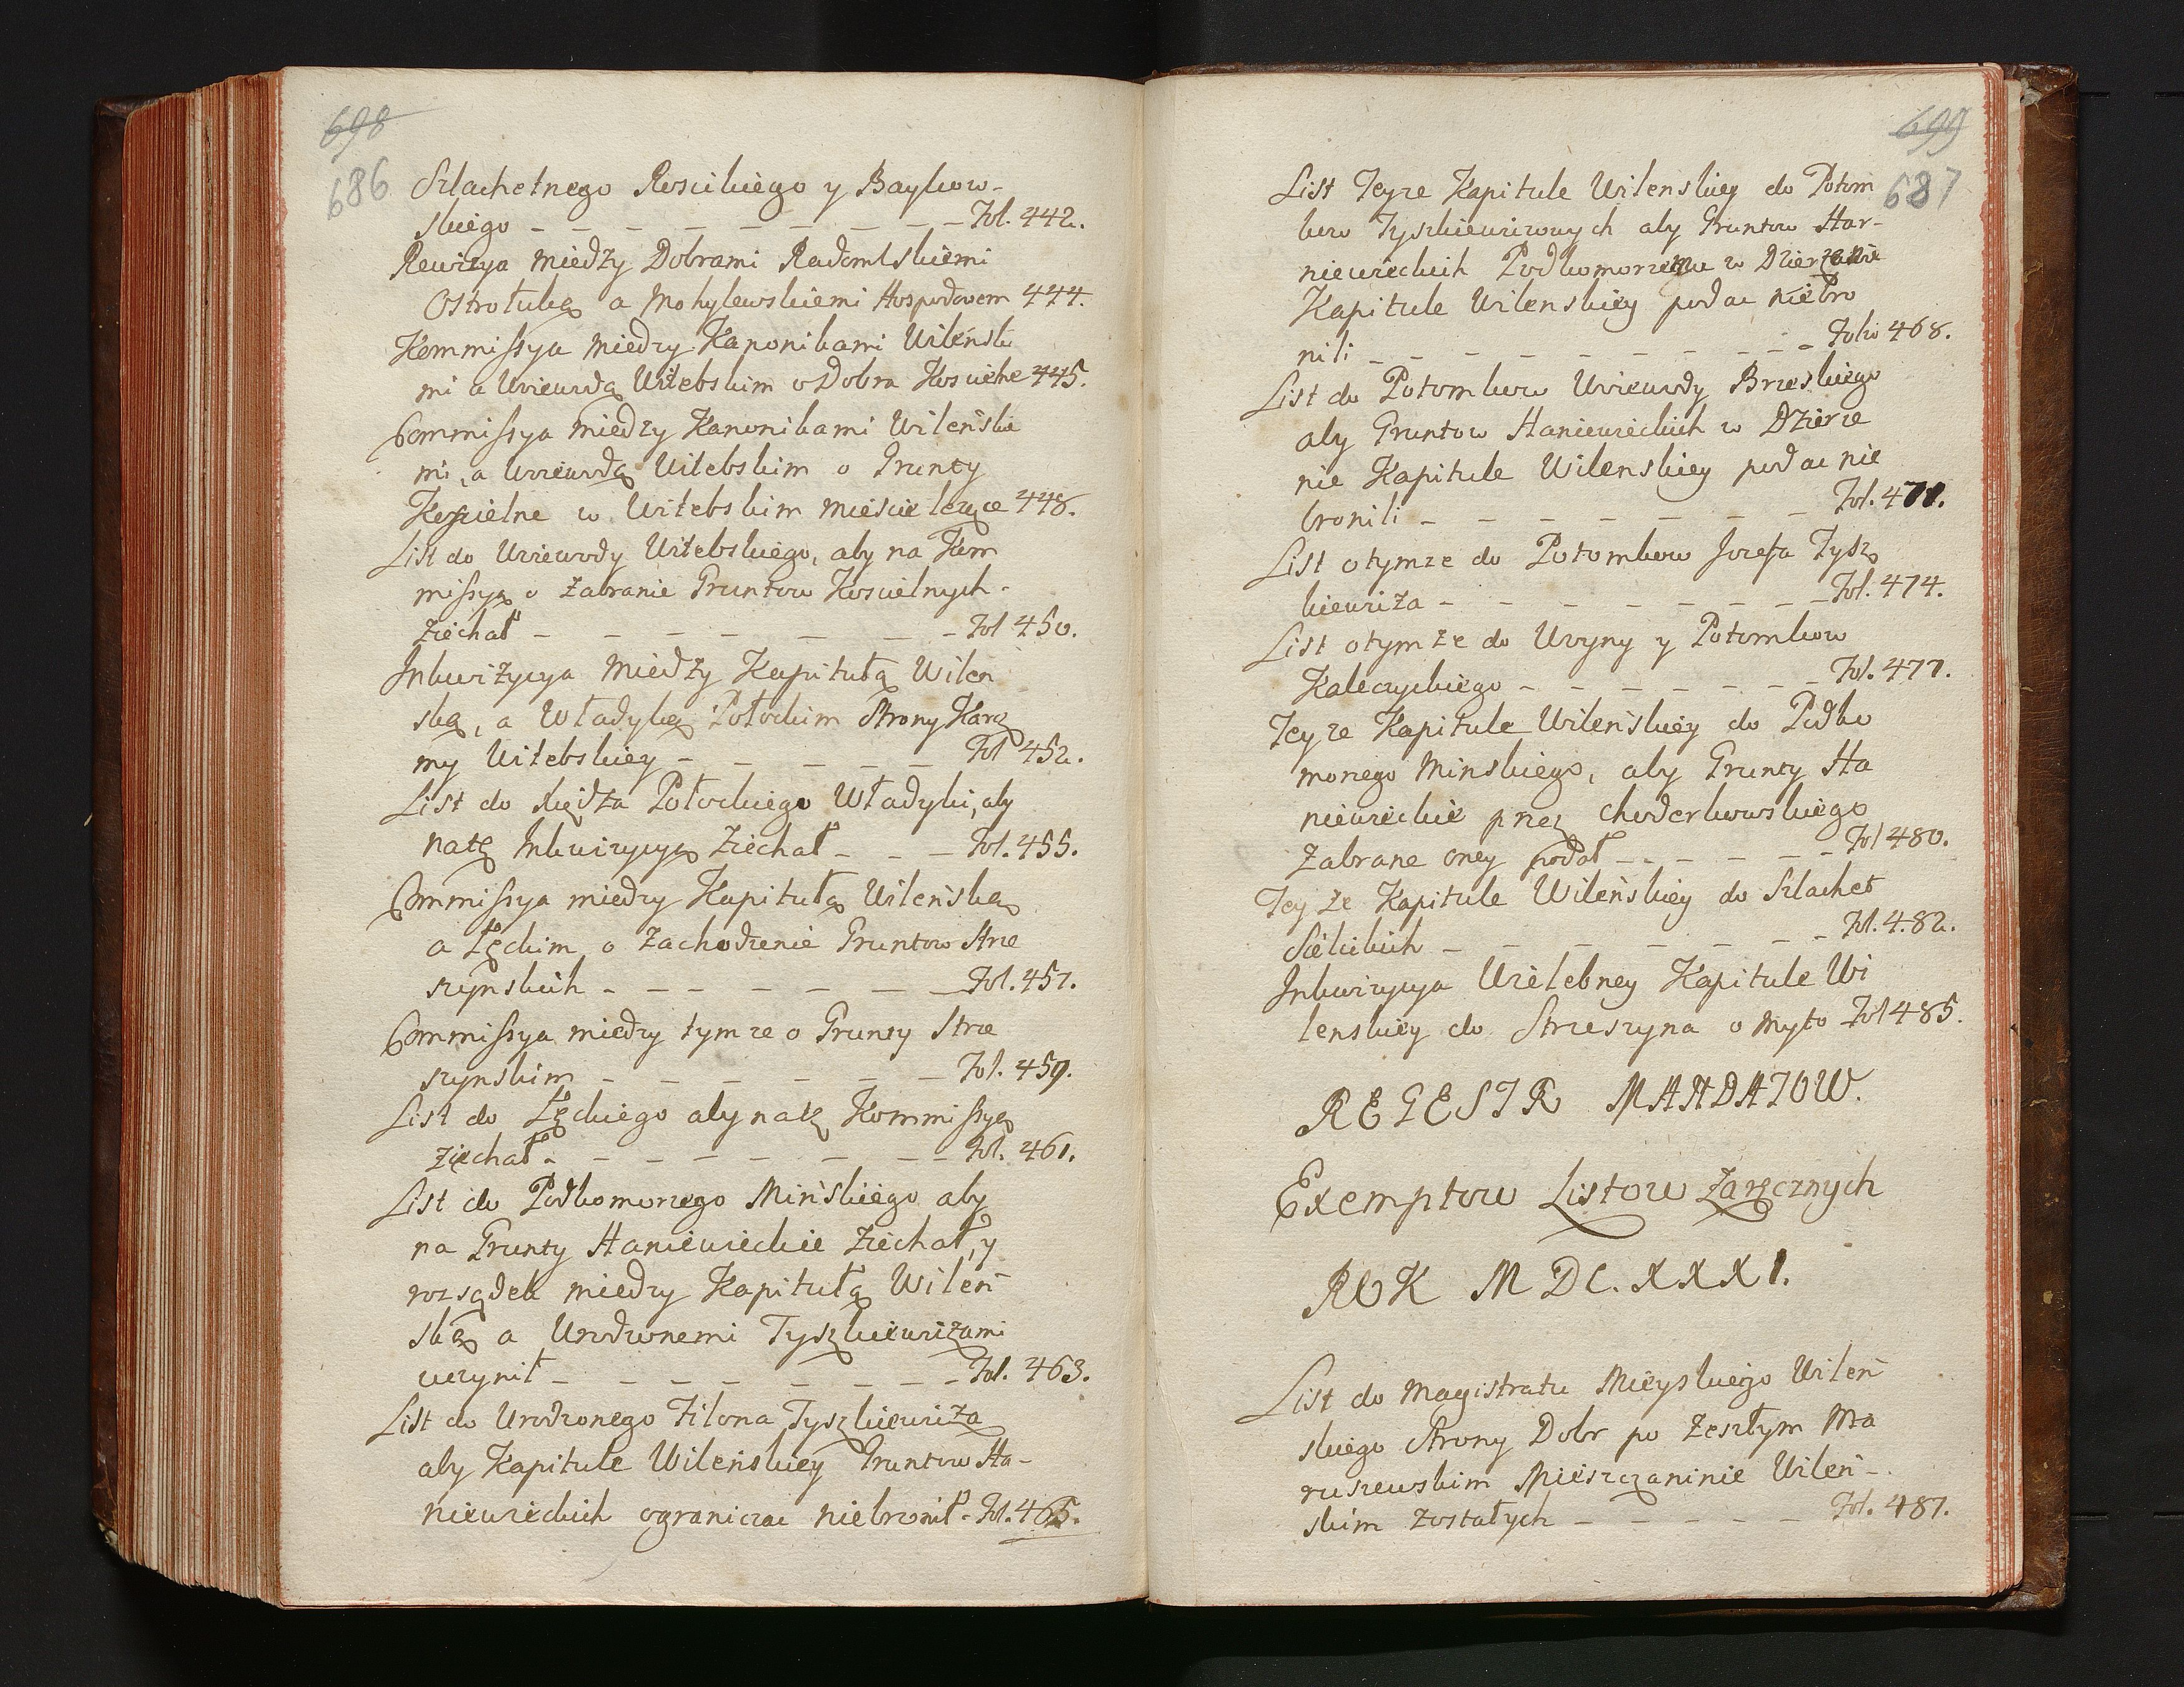 698
686
Szlachetnego Rosickiego y Baykow-
skiego - - - - - - - - - Fol. 442.
Rewizya między Dobrami Radomlskiemi
Ostrołuką a Mohylewskiemi Hospodarem 444.
Kommissya między Kanonikami Wileńsk
mi a Woiewodą Witebskim o Dobra Koscielne 445.
Commissya między Kanonikami Wileńskie
mi, a Woiewodą Witebskim o Grunty
Koscielne w Witebskim Miescie lezące 448.
List do Woiewody Witebskiego, aby na Kom
missyą o Zabranie Gruntow Koscielnych -
Ziechał - - - - - - - Fol 450.
Inkwizycya między Kapitułą Wilen
ską, a Władyką Połockim Strony Karcz
my Witebskiey - - - - - Fol 452.
List do Xiędza Połockiego Władyki, aby
natę Inkwizycyą Ziechał - - - Fol. 455.
Commissya między Kapitułą Wileńską
a Łęckim, o Zachodzenie Gruntow Strze
szynskich - - - - - - - Fol. 457.
Commissya między tymze o Grunty Strze
szynskim - - - - - - Fol. 459.
List do Łęckiego aby natę Kommissyą
Ziechał - - - - - - - - Fol. 461.
List do Podkomorzego Mińskiego aby
na Grunty Haniewieckie Ziechał, y
rozsądek między Kapitułą Wileń
ską a Urodzonemi Tyszkiewiczami
uczynił - - - - - - - - Fol. 463.
List do Urodzonego Filona Tyszkiewicza
aby Kapitule Wileńskiey Gruntow Ha-
niewieckich ograniczac niebronił - Fol. 465.
699
687
List Teyze Kapitule Wilenskiey do Potom
kow Tyszkiewiczowych aby Gruntow Har-
niewieckich Podkomorzemu w Dzierzenie
Kapitule Wilenskiey podac niebro
nili - - - - - - - - - Folio 468.
List do Potomkow Woiewody Brzeskiego
aby Gruntow Haniewieckich w Dzierze
nie Kapitule Wilenskiey podac nie
bronili - - - - - - - Fol. 471.
List otymze do Potomkow Jozefa Tysz
kiewicza - - - - - - - Fol. 474.
List otymze do Woyny y Potomkow
Kaleczyckiego - - - - - - Fol. 477.
Teyze Kapitule Wileńskiey do Podko
morzego Minskiego, aby Grunty Ha
niewieckie przez Choderkowskiego
Zabrane oney podał - - - - - - Fol 480.
Teyze Kapitule Wileńskiey do Szlachet
Sielickich - - - - - - - Fol. 482.
Inkwizycya Wielebney Kapitule Wi
lenskiey do Strzeszyna o Myto Fol 485.
REGESTR MANDATOW.
Exemptow Listow Zaręcznych
ROK MDC.XXXI.
List do Magistratu Mieyskiego Wileń
skiego Strony Dobr po Zeszłym Ma
ruszewskim Mieszczaninie Wileń-
skim Zostałych - - - - - Fol. 487.